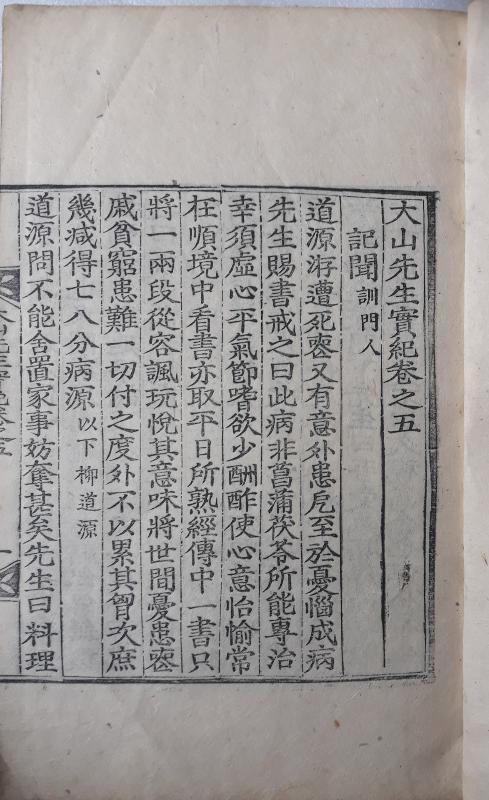 大山先生實紀卷之五
記聞 訓門人
道源洊遭死喪又有意外患戹至於憂惱成病
先生賜書戒之曰此病非菖蒲茯苓所能專治
幸須虛心平氣節嗜欲少酬酢使心意怡愉常
在順境中看書亦取平日所熟經傳中一書只
將一兩段從容諷玩悅其意味將世間憂患喪
戚貧窮患難一切付之度外不以累其胷次庶
幾减得七八分病源 以下柳道源
道源問不能舍置家事妨奪甚矣先生曰料理